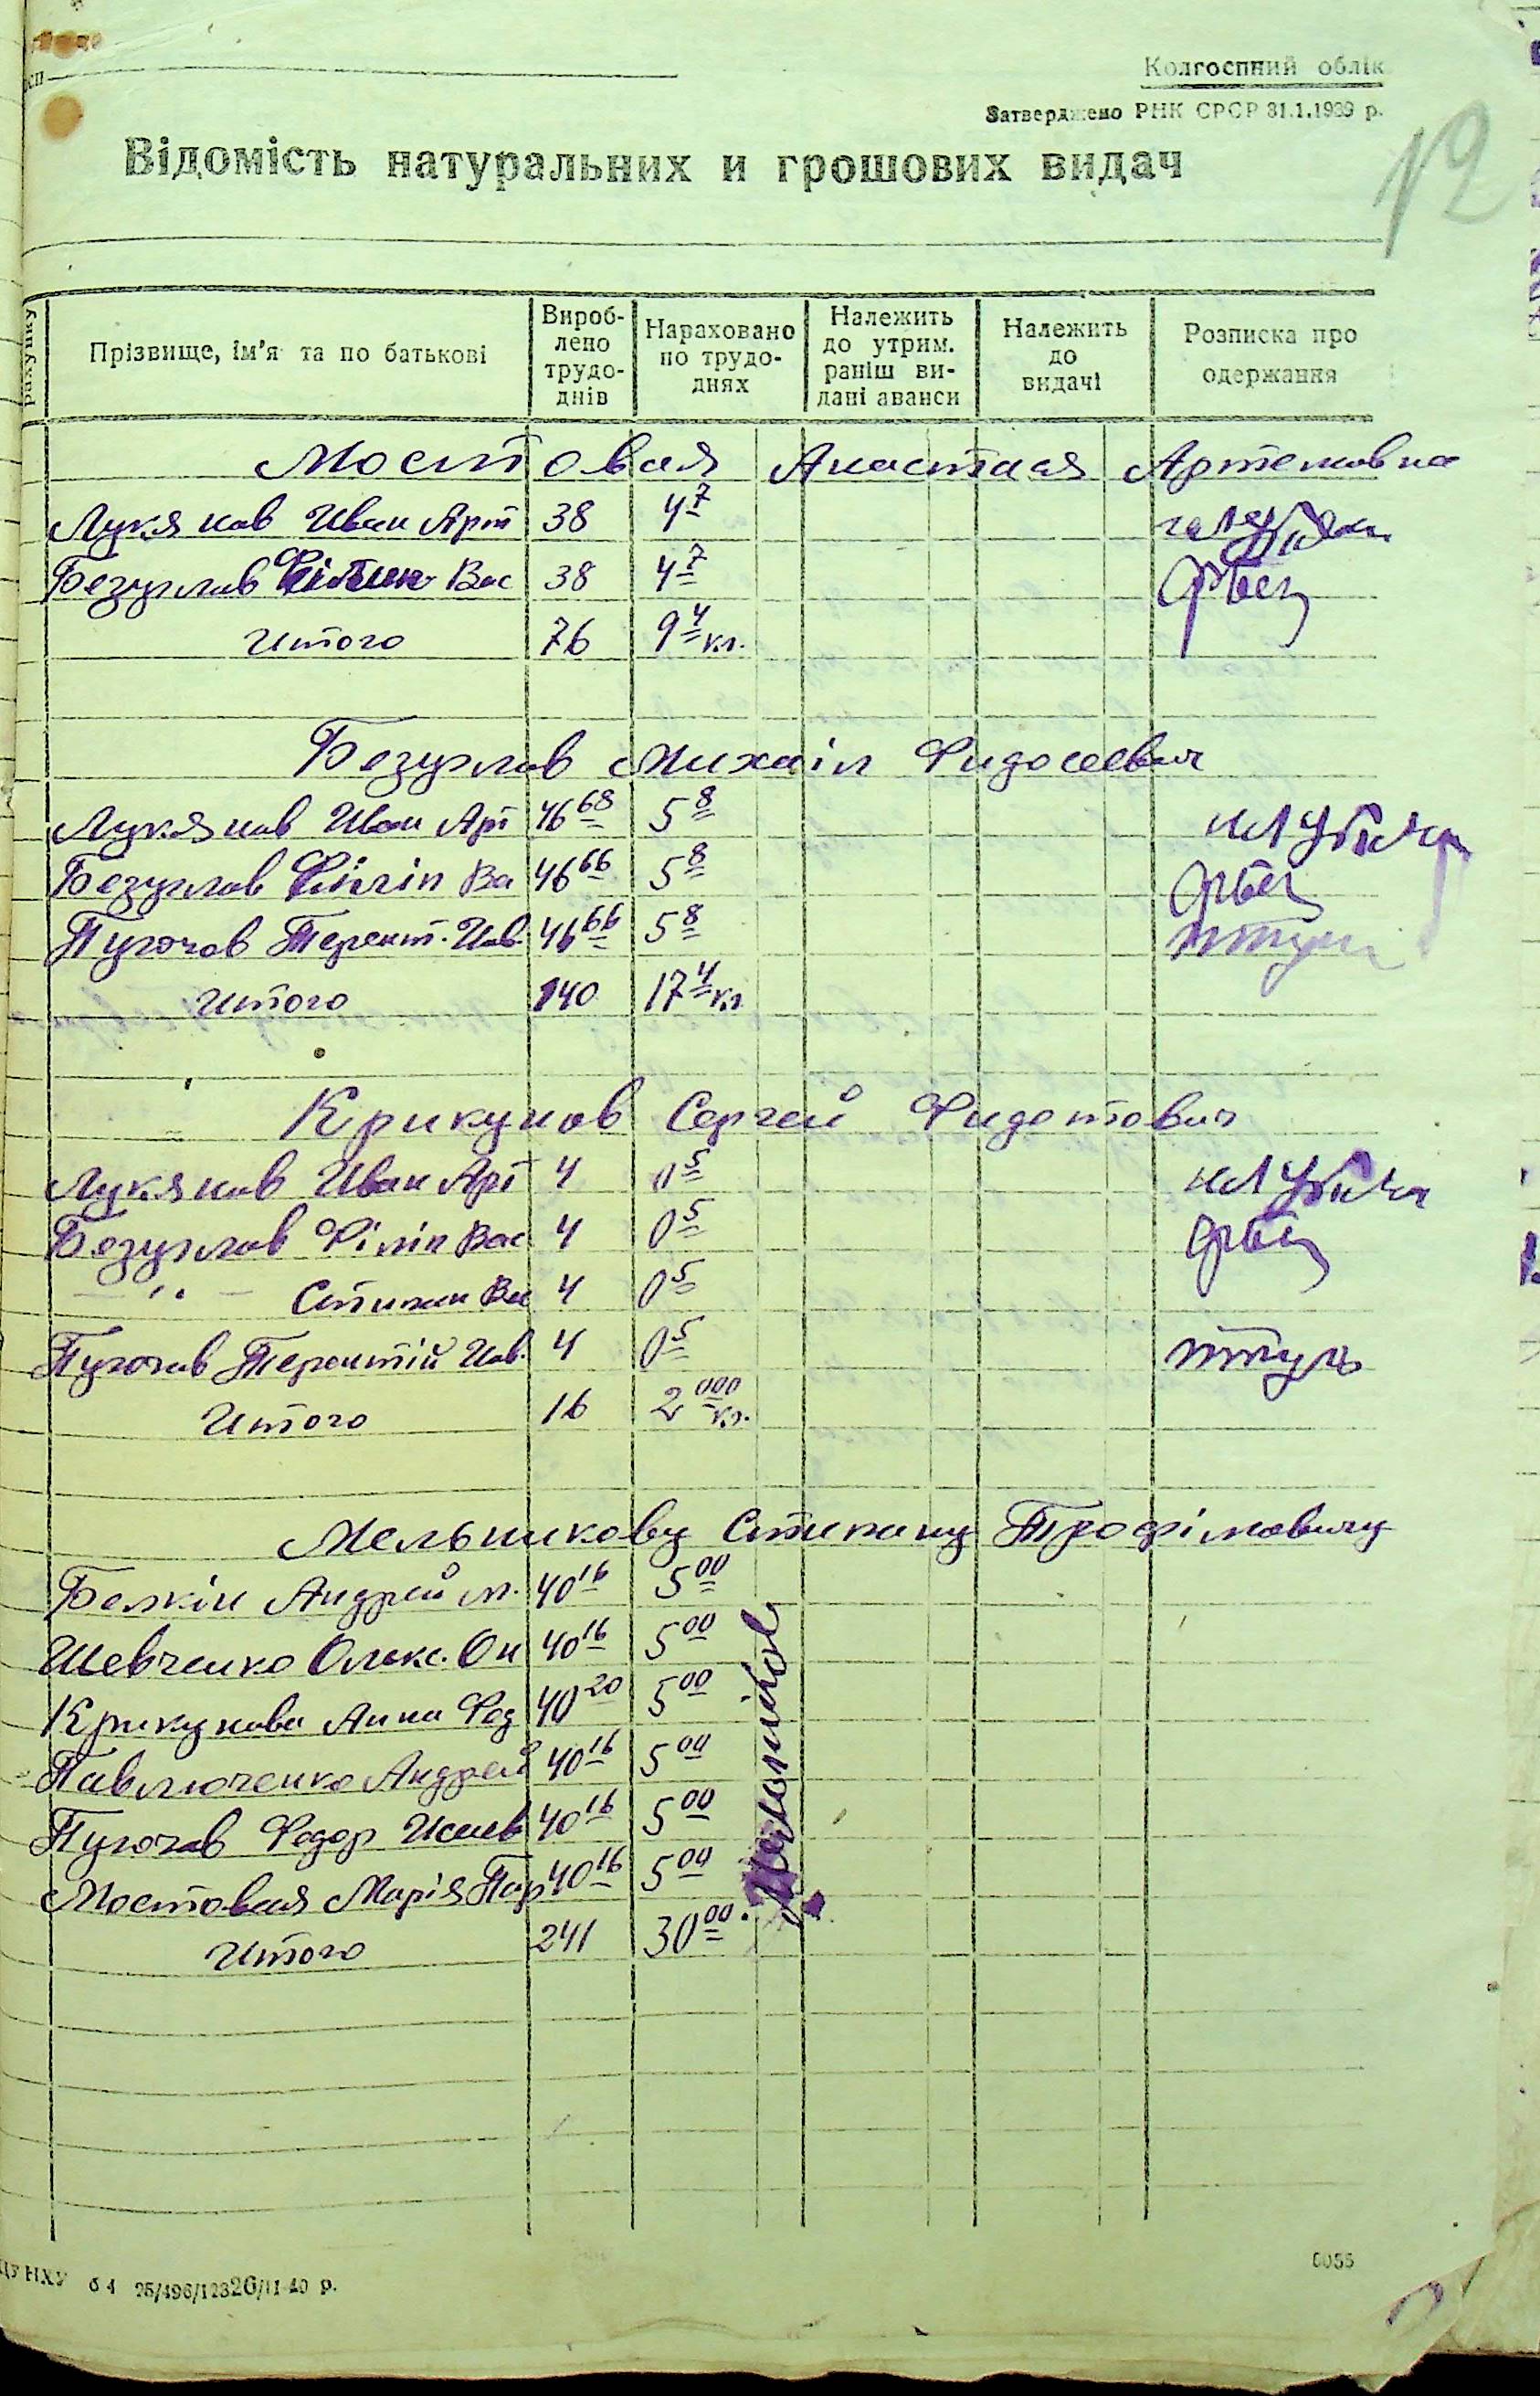 Колгоспний облік
Затверджено РНК СРСР 31.1.1939 р.
12
Відомість натуральних и грошових видач
рахунку
Прізвище, ім'я та по батькові
Вироблено трудоднів
Нараховано по трудоднях
Належить до утрим. раніш видані аванси
Належить до видачі
Розписка про одержання
Мостовая Анастася Артемовна
Лукянов Иван Арт 38 4 7
Безуглов Філіп Вас 38 4 7
Итого 76 9 4 кг.
Безуглов Михаіл Фидосеевич
Лукянов Иван Арт 46 68 5 8
Безуглов Філіп Ва 46 66 5 8
Пугочов Терент. Ив. 46 66 5 8
Итого 140 17 4 кг
Крикунов Сергей Фидотович
Лукянов Иван Арт 4 0 5
Безуглов Філіп Вас 4 0 5
— " — Стипан Ва 4 0 5
Пугочов Терентій Ив. 4 0 5
Итого 16 2 000 кг.
Мельникову Стипану Трофімовичу
Белкін Андрей М. 40 16 5 00
Шевченко Олекс. Он 40 16 5 00
Крикунова Анна Фед 40 20 5 00
Павлюченко Андрей 40 16 5 00
Пугочов Федор Исаев 40 16 5 00
Мостовая Марія Пар 40 16 5 00
Итого 241 30 00
ЦУНХУ б 4 25/496/12326/11 40 р.
6055